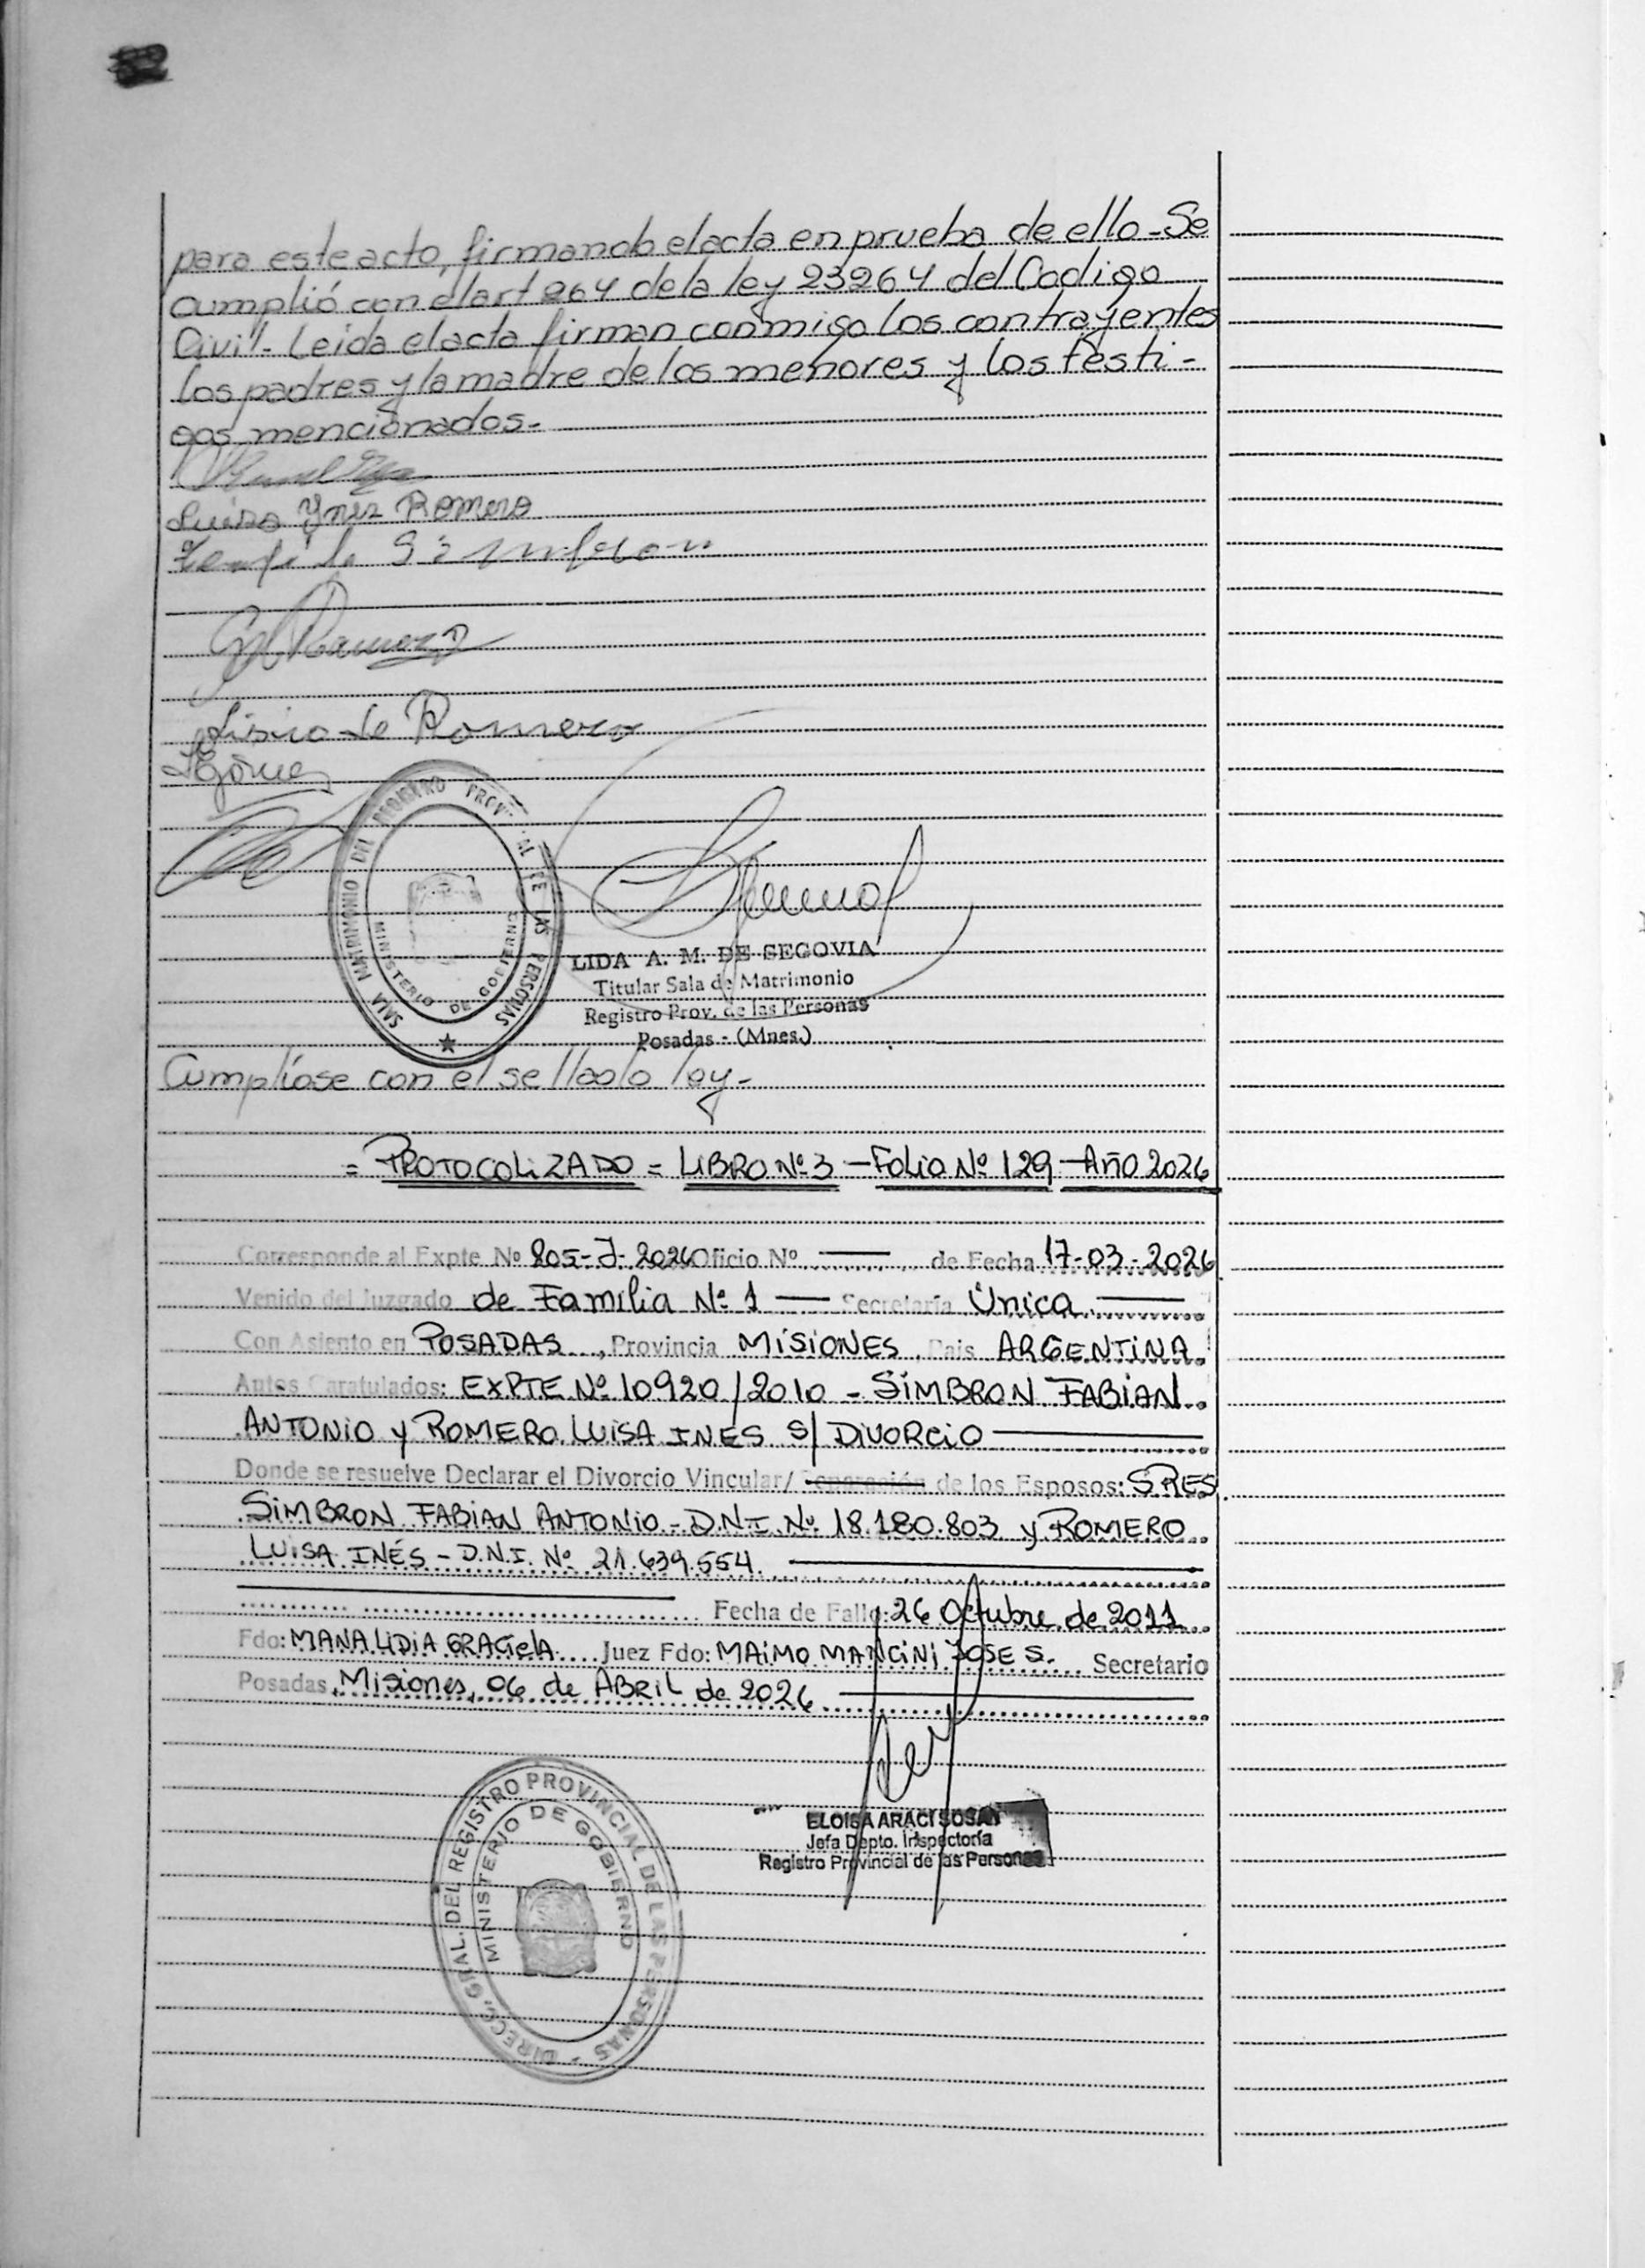 para este acto, firmando el acta en prueba de ello - Se
cumplió con el art 264 de la ley 23264 del Codigo
Civil - Leida el acta firman conmigo los contrayentes
los padres y la madre de los menores y los testi-
gos mencionados.-
Luisa Ynes Romero
Ramirez
de Romero
Gómez
SALA MATRIMONIO DEL REGISTRO PROVINCIAL DE LAS PERSONAS
MINISTERIO DE GOBIERNO
LIDA A. M. DE SEGOVIA
Titular Sala de Matrimonio
Registro Prov. de las Personas
Posadas - (Mnes.)
Cumpliose con el sellado ley -
= PROTOCOLIZADO = LIBRO Nº 3 - FOLIO Nº 129 - AÑO 2026
Corresponde al Expte Nº 805-J-2026 Oficio Nº de Fecha 17-03-2026
Venido del Juzgado de Familia Nº 1 Secretaría Única
Con Asiento en POSADAS, Provincia MISIONES, Pais ARGENTINA.
Autos Caratulados: EXPTE Nº 10920/2010 - SIMBRON FABIAN
ANTONIO y ROMERO LUISA INES S/ DIVORCIO
Donde se resuelve Declarar el Divorcio Vincular/ Separación de los Esposos: SRES
SIMBRON FABIAN ANTONIO - D.N.I. Nº 18.180.803 y ROMERO
LUISA INÉS - D.N.I. Nº 21.639.554.
Fecha de Fallo: 26 Octubre de 2011
Fdo: MANA LIDIA GRACIELA Juez Fdo: MAIMO MANCINI JOSE S. Secretario
Posadas, Misiones, 06 de ABRIL de 2026
ELOISA ARACI SOSA
Jefa Depto. Inspectoría
Registro Provincial de las Personas
DIRECC. GRAL. DEL REGISTRO PROVINCIAL DE LAS PERSONAS
MINISTERIO DE GOBIERNO